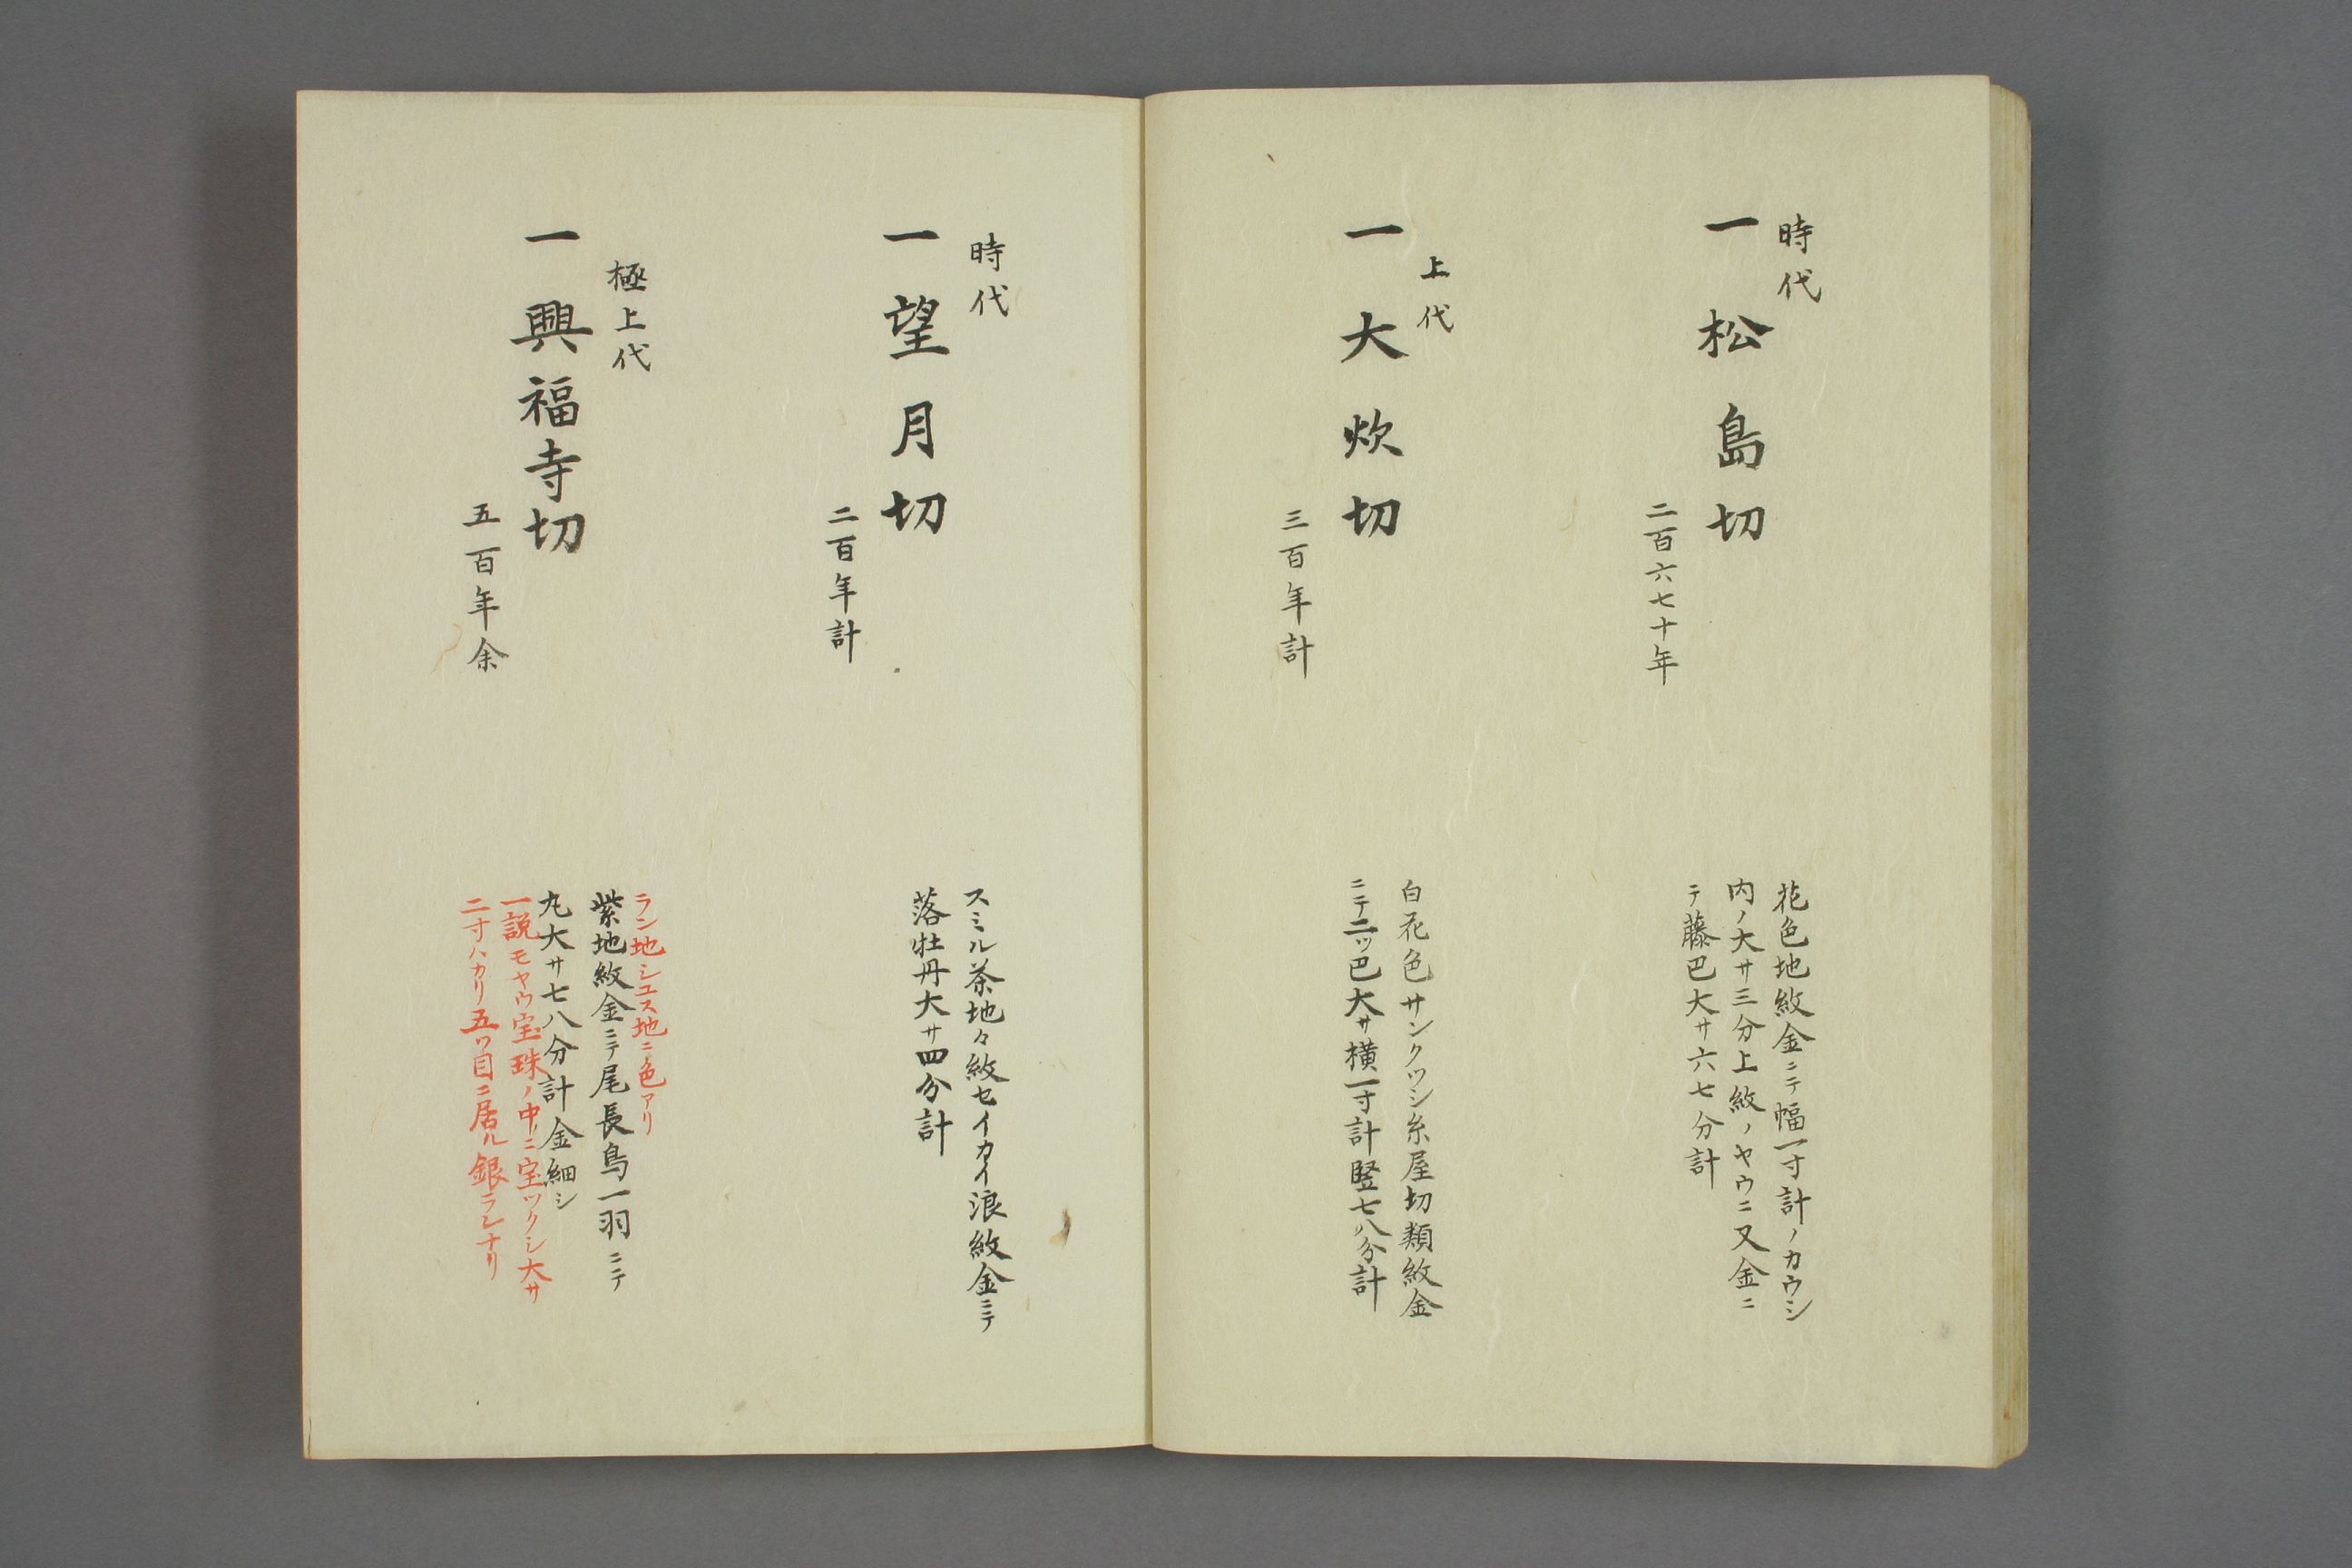 時代
一 松島切
二百六七十年
花色地紋金ニテ幅一寸計ノカウシ
内ノ大サ三分上紋ノヤウニ又金ニ
テ藤巴大サ六七分計
上代
一 大炊切
三百年計
白花色サンクツシ糸屋切類紋金
ニテ二ツ巴大サ横一寸計竪七八分計
時代
一 望月切
二百年計
スミル茶地々紋セイカイ浪紋金ニテ
落牡丹大サ四分計
極上代
一 興福寺切
五百年余
ラン地シユス地ニ色アリ
紫地紋金ニテ尾長鳥一羽ニテ
丸大サ七八分計金細シ
一説モヤウ宝珠ノ中ニ宝ツクシ大サ
二寸ハカリ五ツ目ニ居ル銀ランナリ